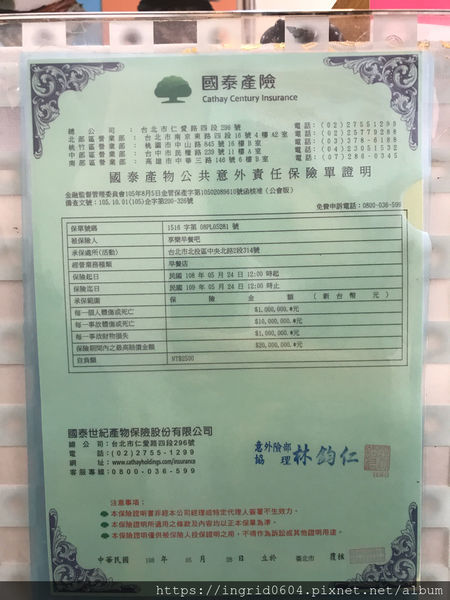 國泰產險
Cathay Century Insurance
總公司：台北市仁愛路四段296號 電話：(02)27551299
北部區營業部：台北市南京東路四段16號4樓42室 電話：(02)25779288
桃竹區營業部：桃園市中山路845號16樓B室 電話：(03)378-6188
中部區營業部：台中市民權路239號11樓A室 電話：(04)23051532
南部區營業部：高雄市中華三路146號6樓B室 電話：(07)286-0345
國泰產物公共意外責任保險單證明
金融監督管理委員會105年8月5日金管保產字第10502089610號函核准（公會版）
備查文號：105.10.01(105)企字第200-326號
免費申訴電話：0800-036-599
保單號碼 1516 字第 08PL05281 號
被保險人 享樂早餐吧
承保處所(活動) 台北市北投區中央北路2段314號
經營業務種類 早餐店
保險起日 民國 108 年 05 月 24 日 12:00 時起
保險迄日 民國 109 年 05 月 24 日 12:00 時止
承保範圍 保險金額（新台幣元）
每一個人體傷或死亡 $1,000,000.*元
每一事故體傷或死亡 $10,000,000.*元
每一事故財物損失 $1,000,000.*元
保險期間內之最高賠償金額 $20,000,000.*元
自負額 NT$2500
國泰世紀產物保險股份有限公司
總公司：台北市仁愛路四段296號
電話：(02)2755-1299
網址：www.cathayholdings.com/insurance
客服專線：0800-036-599
意外險部
協理 林鈞仁
注意事項：
本保險證明書非經本公司經理或特定代理人簽署不生效力。
本保險證明所適用之條款及內容均以正本保單為準。
本保險證明僅供被保險人投保證明之用，不得作為訴訟或其他證明用途。
中華民國 108 年 05 月 28 日立於 臺北市 覆核
https://ingrid0604.pixnet.net/album